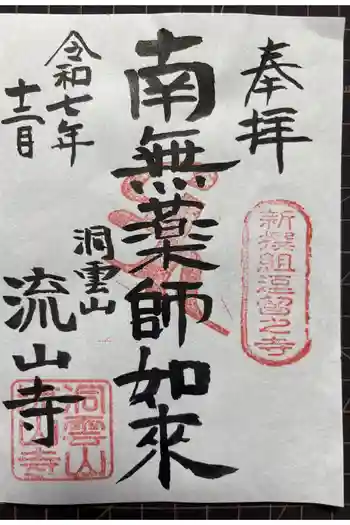 奉拝
新撰組逗留之寺
南無薬師如来
洞雲山
流山寺
令和七年
十二月
洞雲山
流山寺